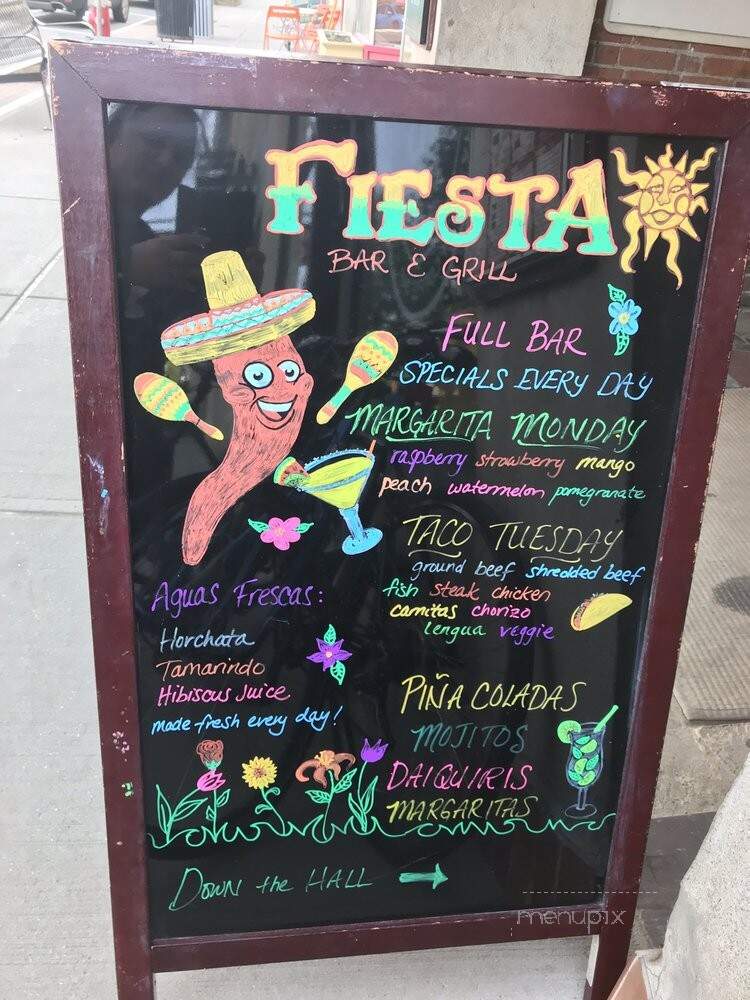 FIESTA
BAR & GRILL
FULL BAR
SPECIALS EVERY DAY
MARGARITA MONDAY
raspberry strawberry mango
peach watermelon pomegranate
TACO TUESDAY
ground beef shredded beef
fish steak chicken
carnitas chorizo
lengua veggie
Aguas Frescas:
Horchata
Tamarindo
Hibiscus Juice
made fresh every day!
PIÑA COLADAS
MOJITOS
DAIQUIRIS
MARGARITAS
DOWN the HALL →
menupix